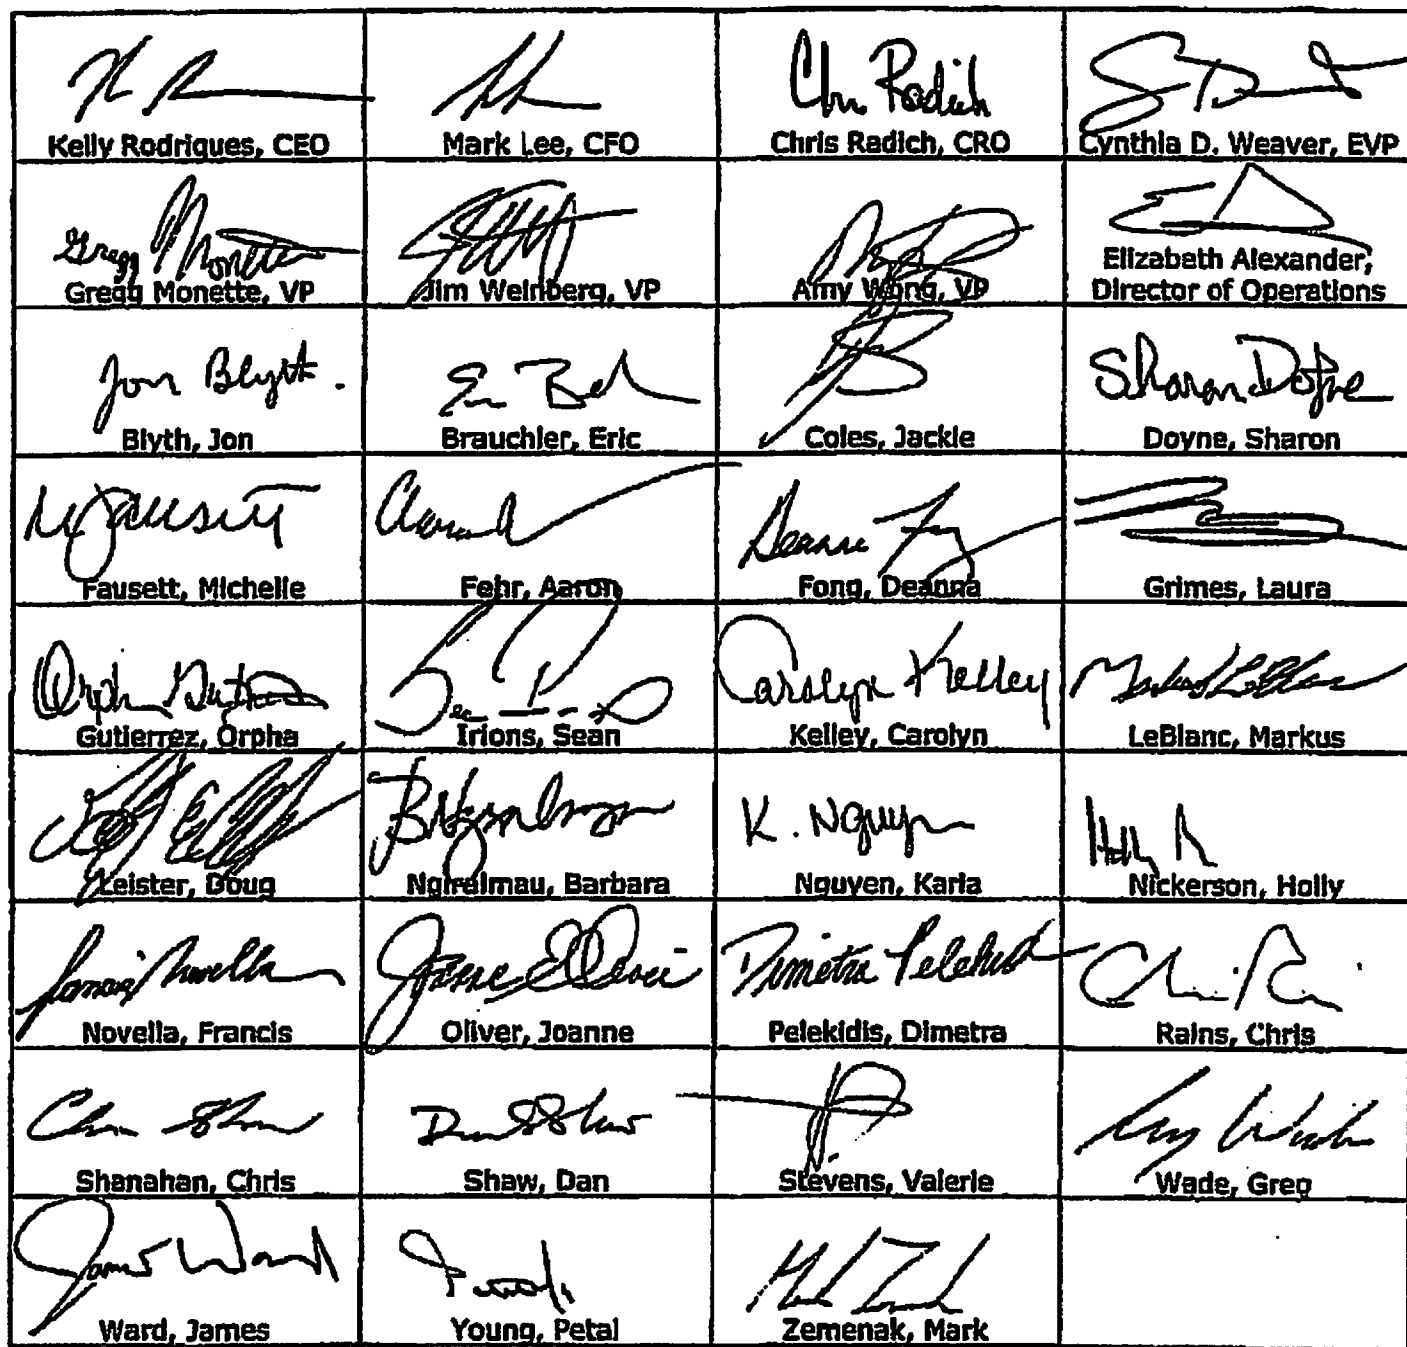 Kelly Rodriques, CEO
Mark Lee, CFO
Chris Radich
Chris Radich, CRO
Cynthia D. Weaver, EVP
Gregg Monette
Gregg Monette, VP
Jim Weinberg, VP
Amy Wong, VP
Elizabeth Alexander,
Director of Operations
Jon Blyth.
Blyth, Jon
Brauchler, Eric
Coles, Jackie
Sharon Doyne
Doyne, Sharon
M Fausett
Fausett, Michelle
Fehr, Aaron
Deanna Fong
Fong, Deanna
Grimes, Laura
Gutierrez, Orpha
Irions, Sean
Carolyn Kelley
Kelley, Carolyn
LeBlanc, Markus
Leister, Doug
Ngiraimau, Barbara
K. Nguyen
Nguyen, Karla
Nickerson, Holly
Novella, Francis
Oliver, Joanne
Dimetra Pelekidis
Pelekidis, Dimetra
Rains, Chris
Shanahan, Chris
Shaw, Dan
Stevens, Valerie
Wade, Greg
James Ward
Ward, James
Young, Petal
Zemenak, Mark